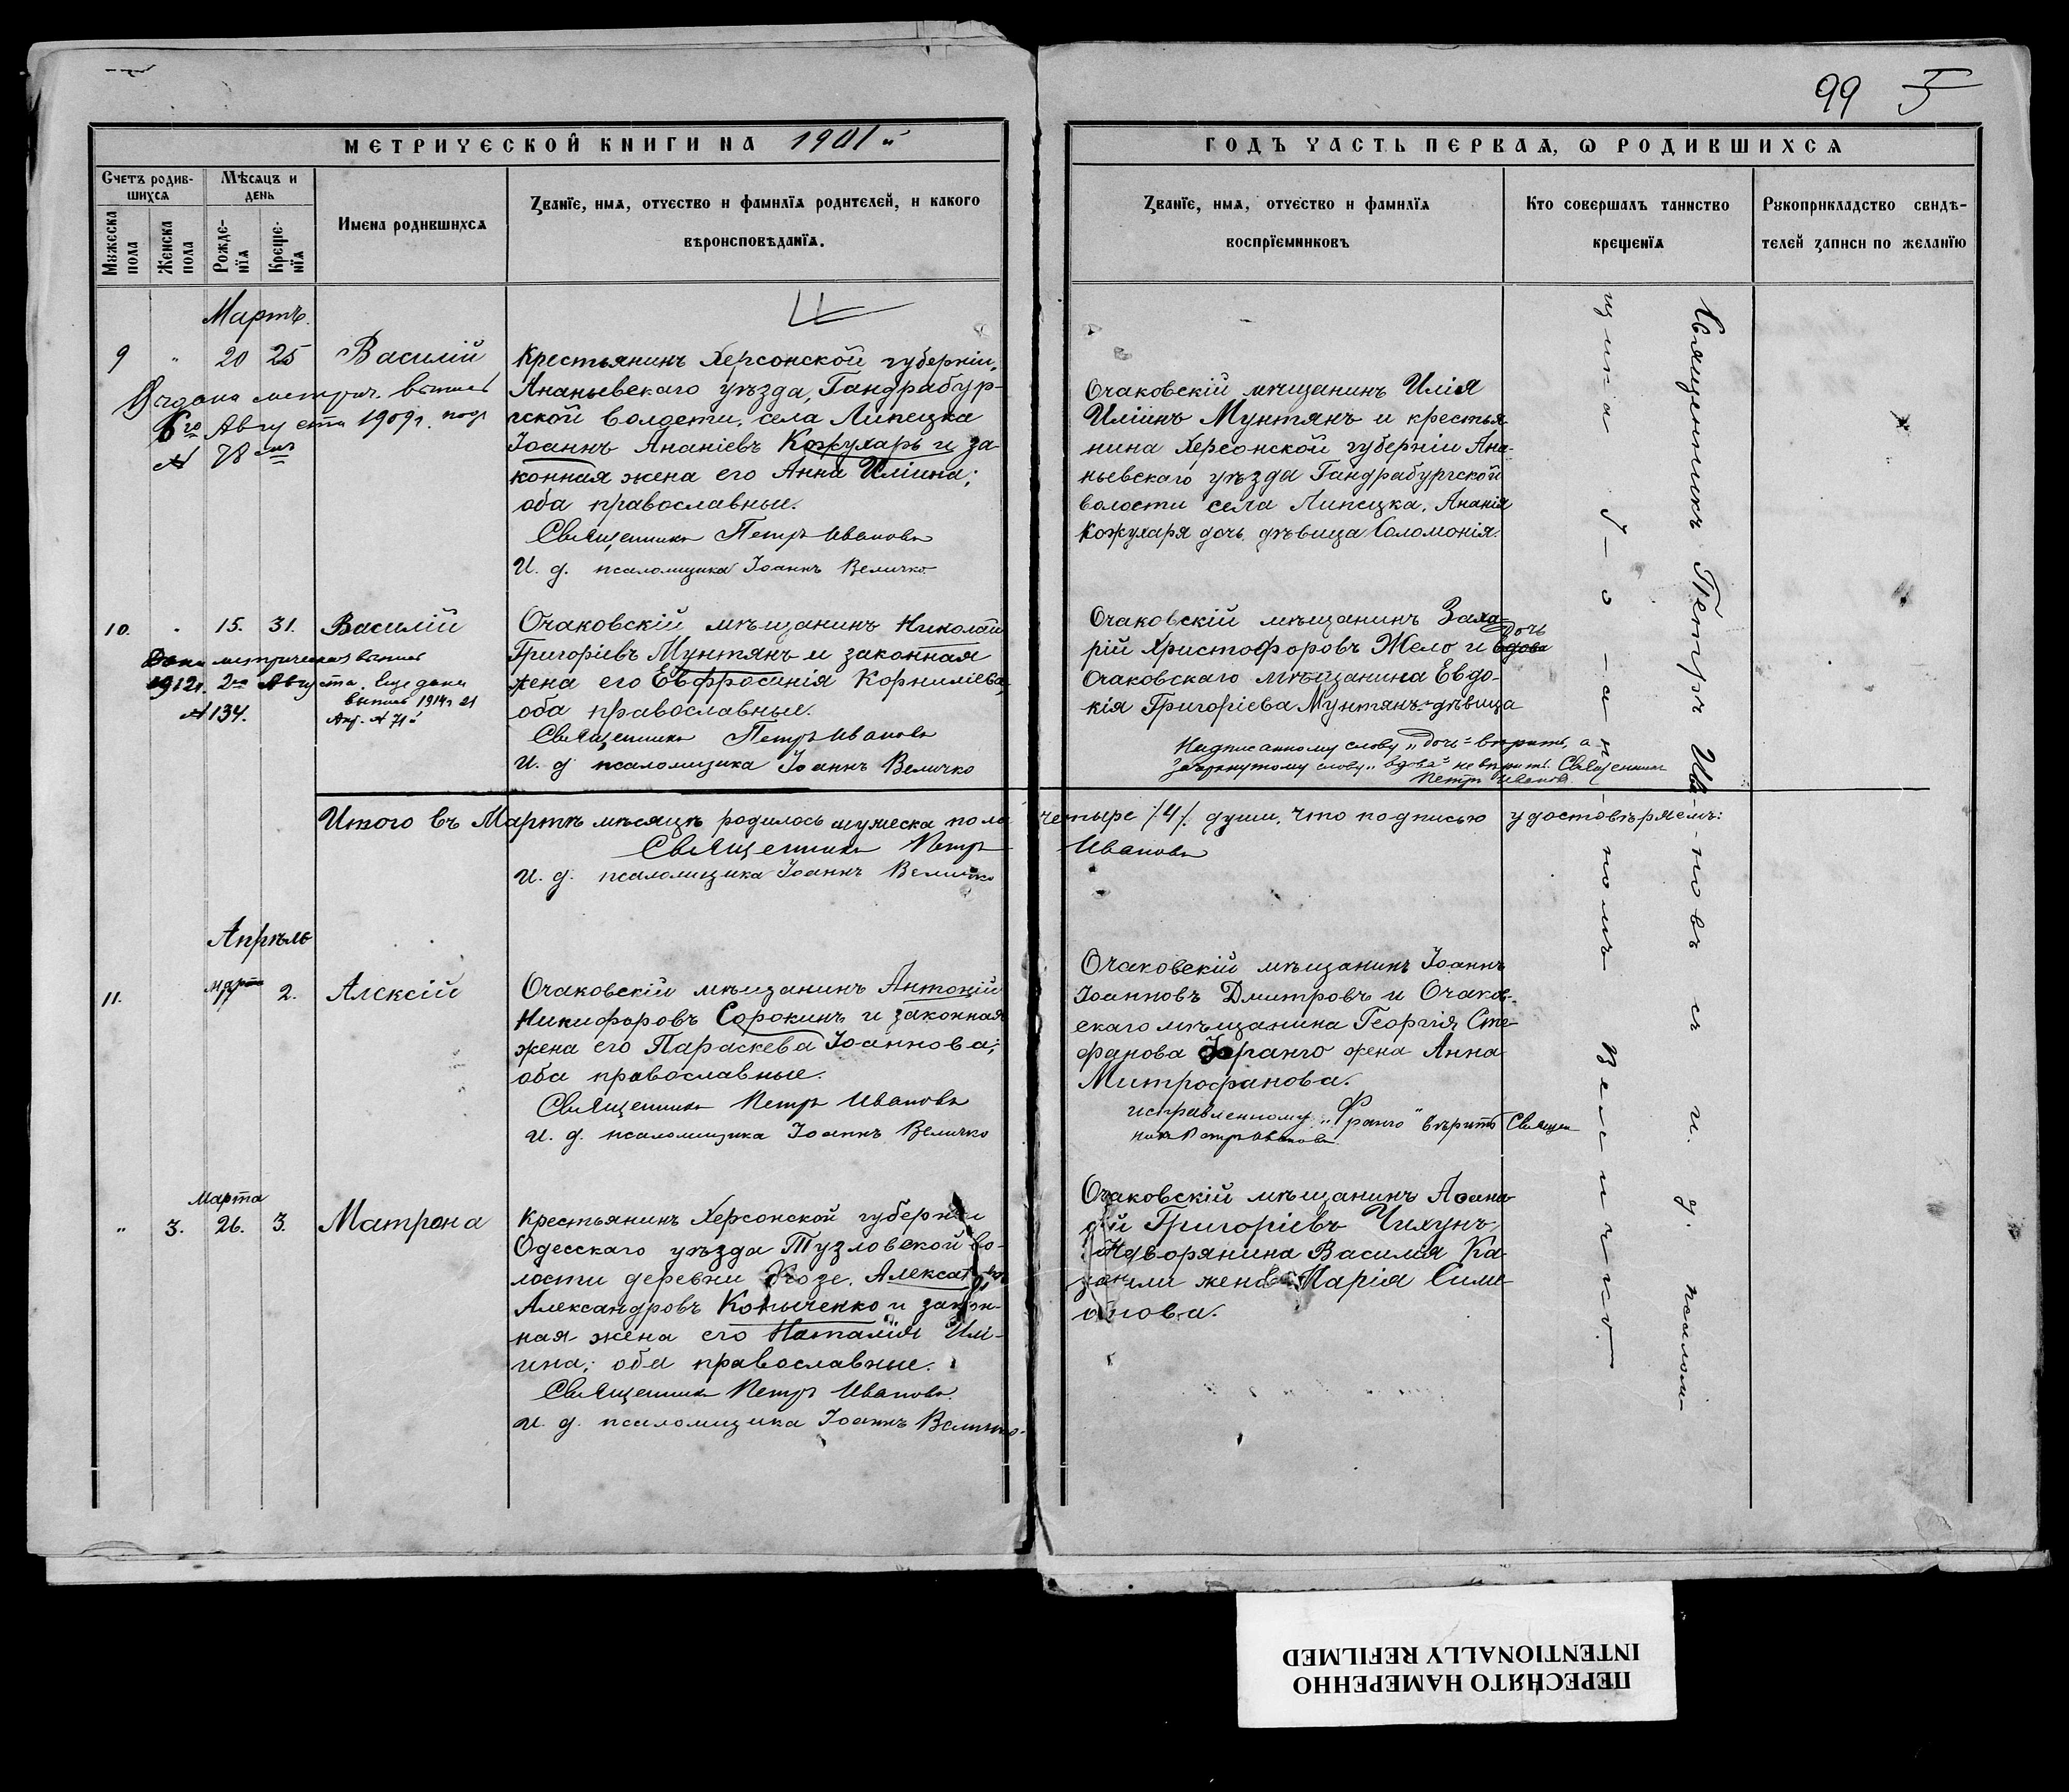 99 5
МЕТРИЧЕСКОЙ КНИГИ НА 1901 й
ГОДЪ ЧАСТЬ ПЕРВАЯ, Ѡ РОДИВШИХСЯ
Счетъ родив-
шихся
Мѣсяцъ и
день
Мужеска
пола
Женска
пола
Рожде-
нїя
Креще-
нїя
Имена родившихся
Званїе, имя, отчество и фамилїя родителей, и какого
вѣроисповѣданїя.
Званїе, имя, отчество и фамилїя
воспрїемниковъ
Кто совершалъ таинство
крещенїя
Рукоприкладство свидѣ-
телей записи по желанїю
Мартъ.
9 " 20 25 Василій
Выдана метрич. выпись
6го Августа 1909г. подъ
№ 78
Крестьянинъ Херсонской губерніи,
Ананьевскаго уѣзда, Гандрабур-
ской волости, села Липецка
Іоаннъ Ананіевъ Кожухарь и за-
конная жена его Анна Иліина;
оба православные.
Священникъ Петръ Ивановъ
И. д. псаломщика Іоаннъ Величко
Очаковскій мѣщанинъ Илія
Иліинъ Мунтянъ и крестья
нина Херсонской губерніи Ана-
ньевскаго уѣзда Гандрабургской
волости села Липецка, Ананія
Кожухаря дочь дѣвица Соломонія.
10. " 15. 31. Василій
Дана метрическая выпись
1912г. 2го Августа, еще дана
выпись 1914г 21
№ 134.
№ 71й
Очаковскій мѣщанинъ Николай
Григоріевъ Мунтянъ и законная
жена его Евфросинія Корниліева,
оба православные.
Священникъ Петръ Ивановъ
И. д. псаломщика Іоаннъ Величко
Очаковскій мѣщанинъ Заха-
рій Христофоровъ Жело и вдова
дочь
Очаковскаго мѣщанина Евдо-
кія Григоріева Мунтянъ дѣвица
Надписанному слову „дочь" вѣрить, а
зачеркнутому слову „вдова" не вѣрить. Священникъ
Петръ Ивановъ
Итого въ Мартѣ мѣсяцѣ родилось мужеска пола четыре /4/ души, что подписью удостовѣряемъ:
Священникъ Петръ Ивановъ
И. д. псаломщика Іоаннъ Величко
Апрѣль
11. Марта 2. Алексій
Очаковскій мѣщанинъ Антоній
Никифоровъ Сорокинъ и законная
жена его Параскева Іоаннова;
оба православные.
Священникъ Петръ Ивановъ
И. д. псаломщика Іоаннъ Величко
Очаковскій мѣщанинъ Іоаннъ
Іоанновъ Дмитровъ и Очаков-
скаго мѣщанина Георгія Сте-
фанова Франго жена Анна
Митрофанова.
исправленному „Франго" вѣрить Священ
никъ Петръ Ивановъ
Марта
" 3. 26. 3. Матрона
Крестьянинъ Херсонской губерніи
Одесскаго уѣзда Тузловской во-
лости деревни
Александровъ Копыченко и закон-
ная жена его Наталія Илі-
ина; оба православные.
Священникъ Петръ Ивановъ
И. д. псаломщика Іоаннъ Величко.
Очаковскій мѣщанинъ
Григоріевъ Чихунъ
и дворянина Василія Ка-
жена Марія Симе-
онова.
Священникъ Петръ Ива-новъ съ и. д. псалом-
щика І-о-анномъ Величко.
ПЕРЕСНЯТО НАМЕРЕННО
INTENTIONALLY REFILMED